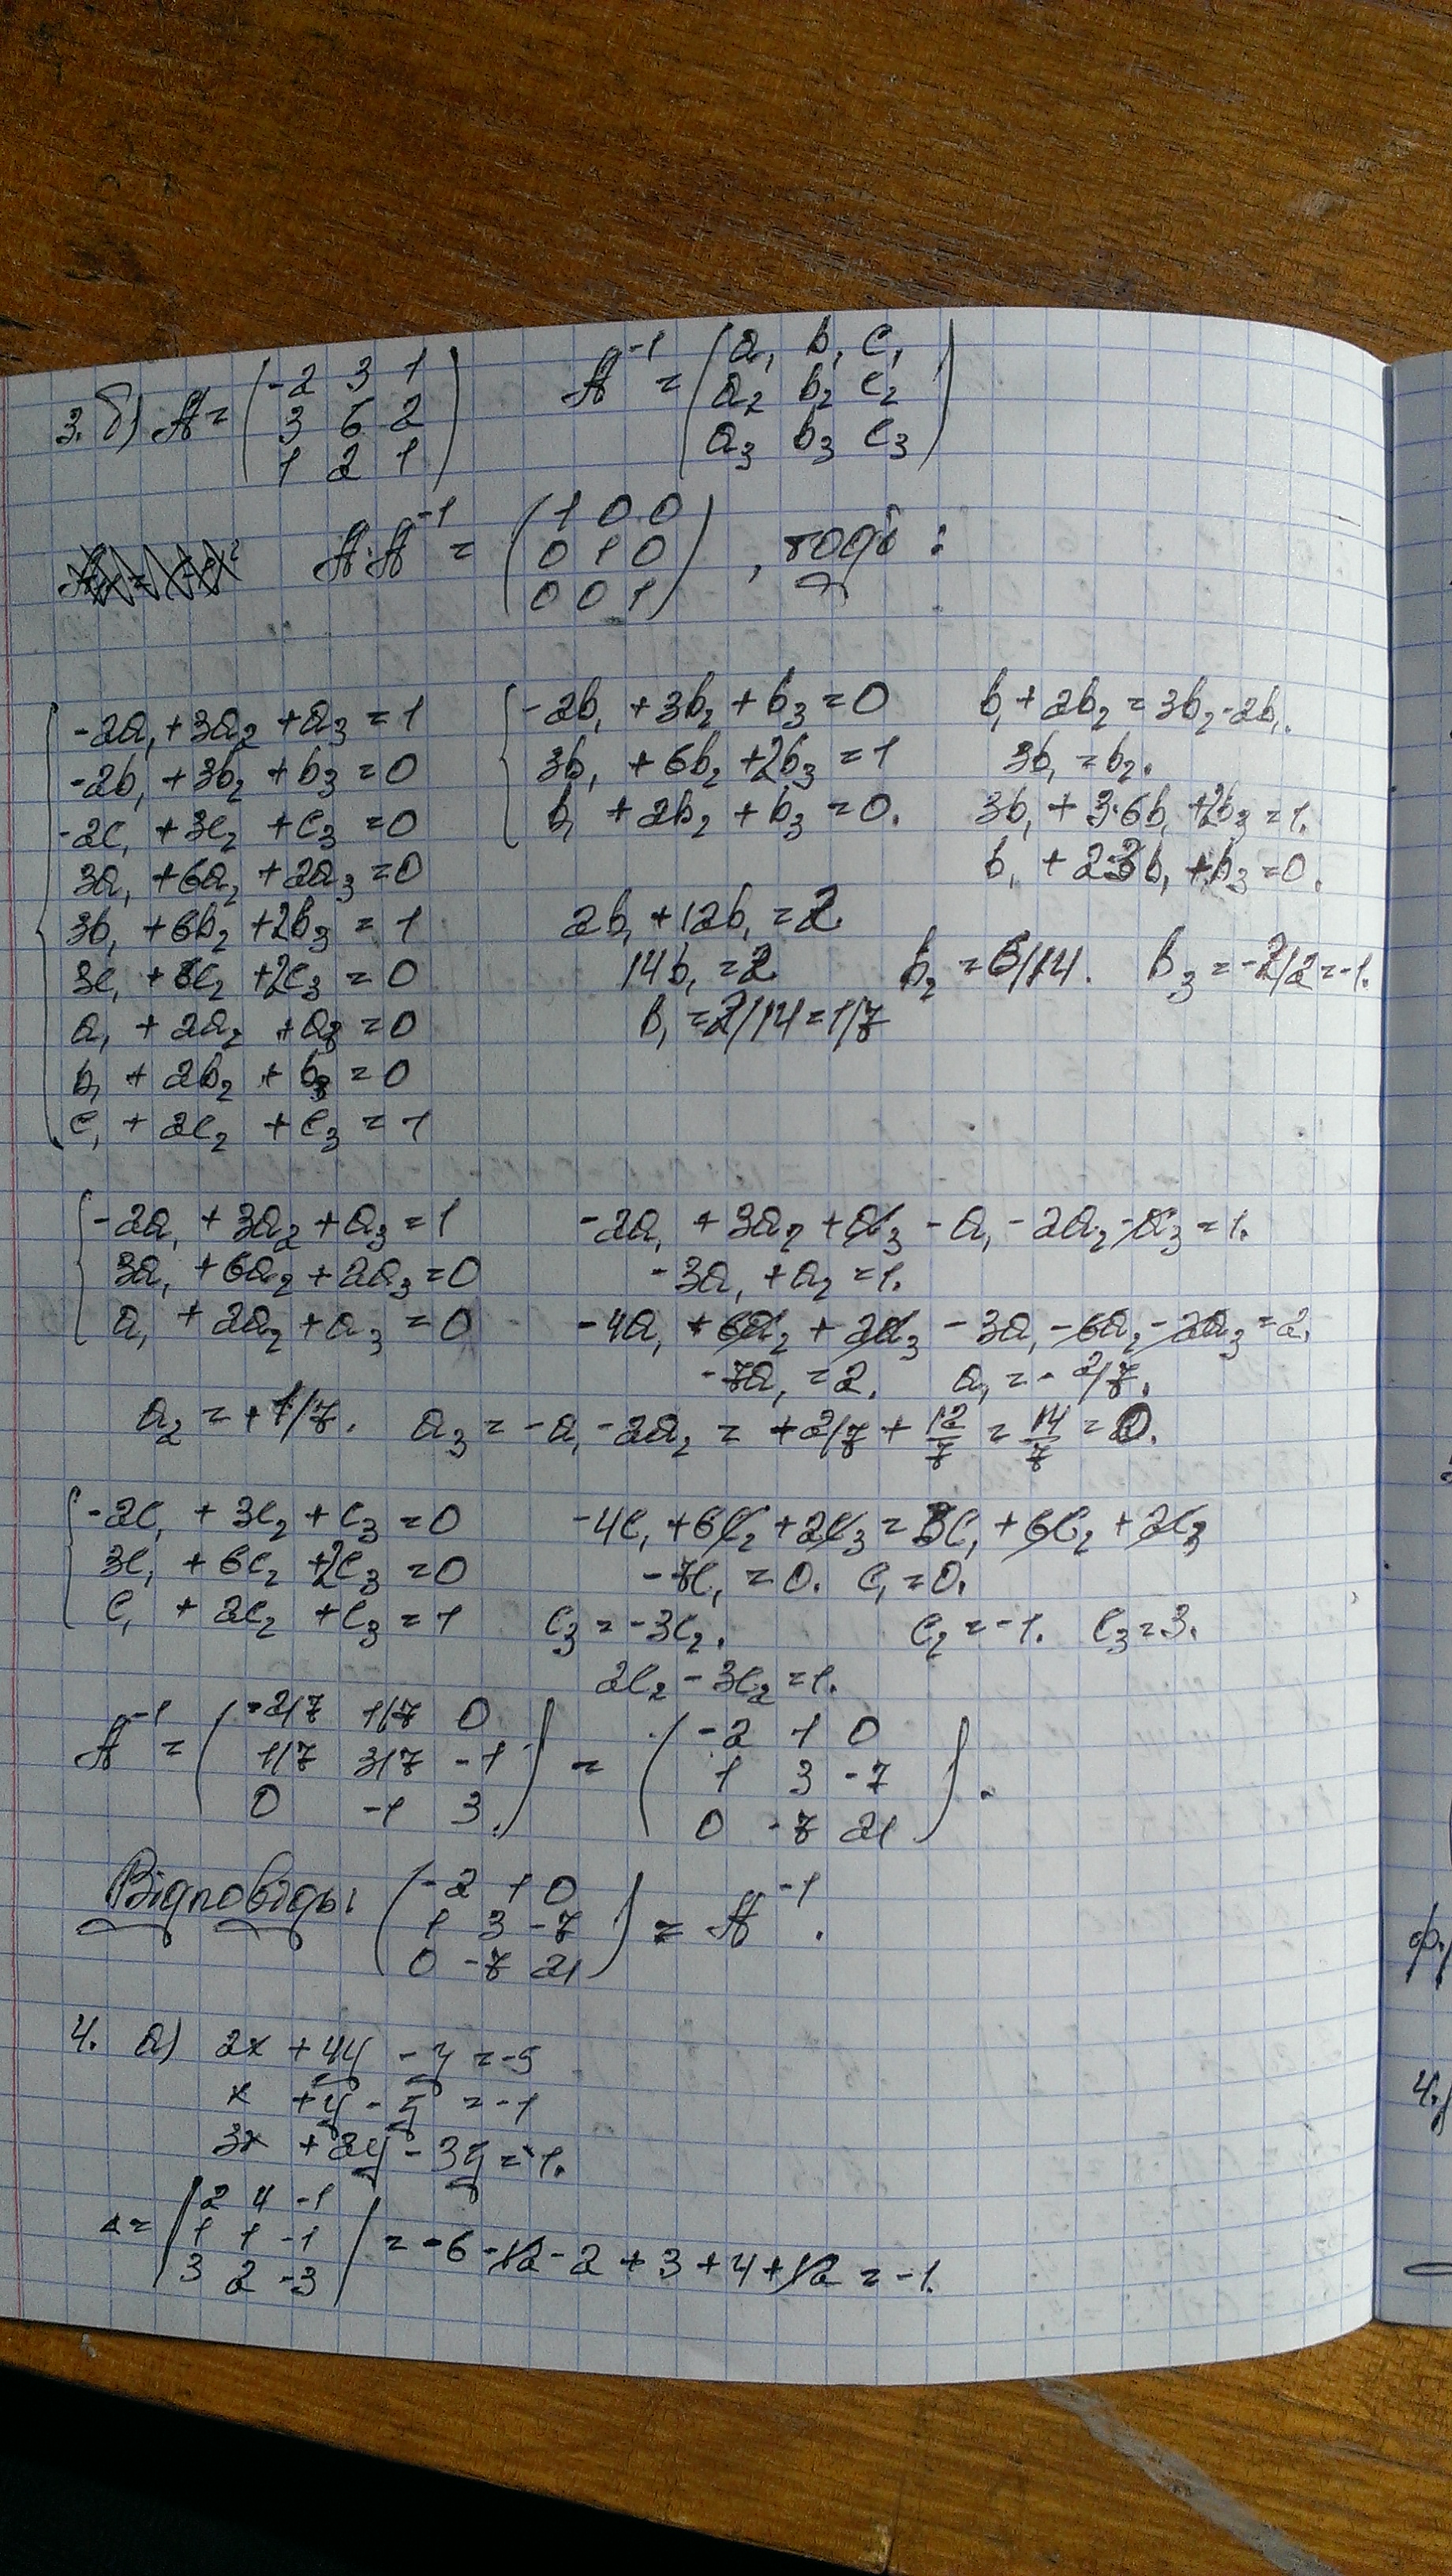 3. б) A = (-2 3 1; 3 6 2; 1 2 1) A⁻¹ = (a₁ b₁ c₁; a₂ b₂ c₂; a₃ b₃ c₃)
A·A⁻¹ = (1 0 0; 0 1 0; 0 0 1), тоді :
-2a₁ + 3a₂ + a₃ = 1
-2b₁ + 3b₂ + b₃ = 0
-2c₁ + 3c₂ + c₃ = 0
3a₁ + 6a₂ + 2a₃ = 0
3b₁ + 6b₂ + 2b₃ = 1
3c₁ + 6c₂ + 2c₃ = 0
a₁ + 2a₂ + a₃ = 0
b₁ + 2b₂ + b₃ = 0
c₁ + 2c₂ + c₃ = 1
-2b₁ + 3b₂ + b₃ = 0
3b₁ + 6b₂ + 2b₃ = 1
b₁ + 2b₂ + b₃ = 0.
b₁ + 2b₂ = 3b₂ - 2b₁.
3b₁ = b₂.
3b₁ + 3·6b₁ + 2b₃ = 1.
b₁ + 2·3b₁ + b₃ = 0.
2b₁ + 12b₁ = 2
14b₁ = 2 b₂ = 6/14. b₃ = -2/2 = -1.
b₁ = 2/14 = 1/7
-2a₁ + 3a₂ + a₃ = 1 -2a₁ + 3a₂ + a₃ - a₁ - 2a₂ - a₃ = 1.
3a₁ + 6a₂ + 2a₃ = 0 -3a₁ + a₂ = 1.
a₁ + 2a₂ + a₃ = 0 -4a₁ + 6a₂ + 2a₃ - 3a₁ - 6a₂ - 2a₃ = 2.
-7a₁ = 2. a₁ = - 2/7.
a₂ = + 1/7. a₃ = -a₁ - 2a₂ = +2/7 + 12/7 = 14/7 = 0.
-2c₁ + 3c₂ + c₃ = 0 -4c₁ + 6c₂ + 2c₃ = 3c₁ + 6c₂ + 2c₃
3c₁ + 6c₂ + 2c₃ = 0 -7c₁ = 0. c₁ = 0.
c₁ + 2c₂ + c₃ = 1 c₃ = -3c₂. c₂ = -1. c₃ = 3.
2c₂ - 3c₂ = 1.
A⁻¹ = (-2/7 1/7 0; 1/7 3/7 -1; 0 -1 3) = (-2 1 0; 1 3 -7; 0 -7 21).
Відповідь: (-2 1 0; 1 3 -7; 0 -7 21) = A⁻¹.
4. а) 2x + 4y - z = -5
x + y - z = -1
3x + 2y - 3z = -1.
Δ = |2 4 -1; 1 1 -1; 3 2 -3| = -6 - 12 - 2 + 3 + 4 + 12 = -1.
ф.
4.